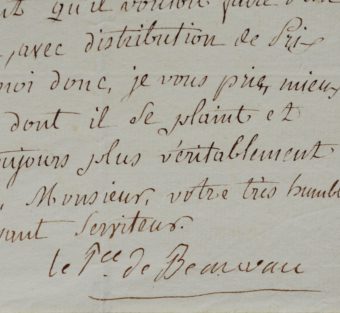 qu'il vouloit faire d'un
, avec distribution de Prix
moi donc, je vous prie, mieux
dont il se plaint et
oujours plus véritablement
, Monsieur, votre très humb
sant serviteur.
le Pce de Beauvau